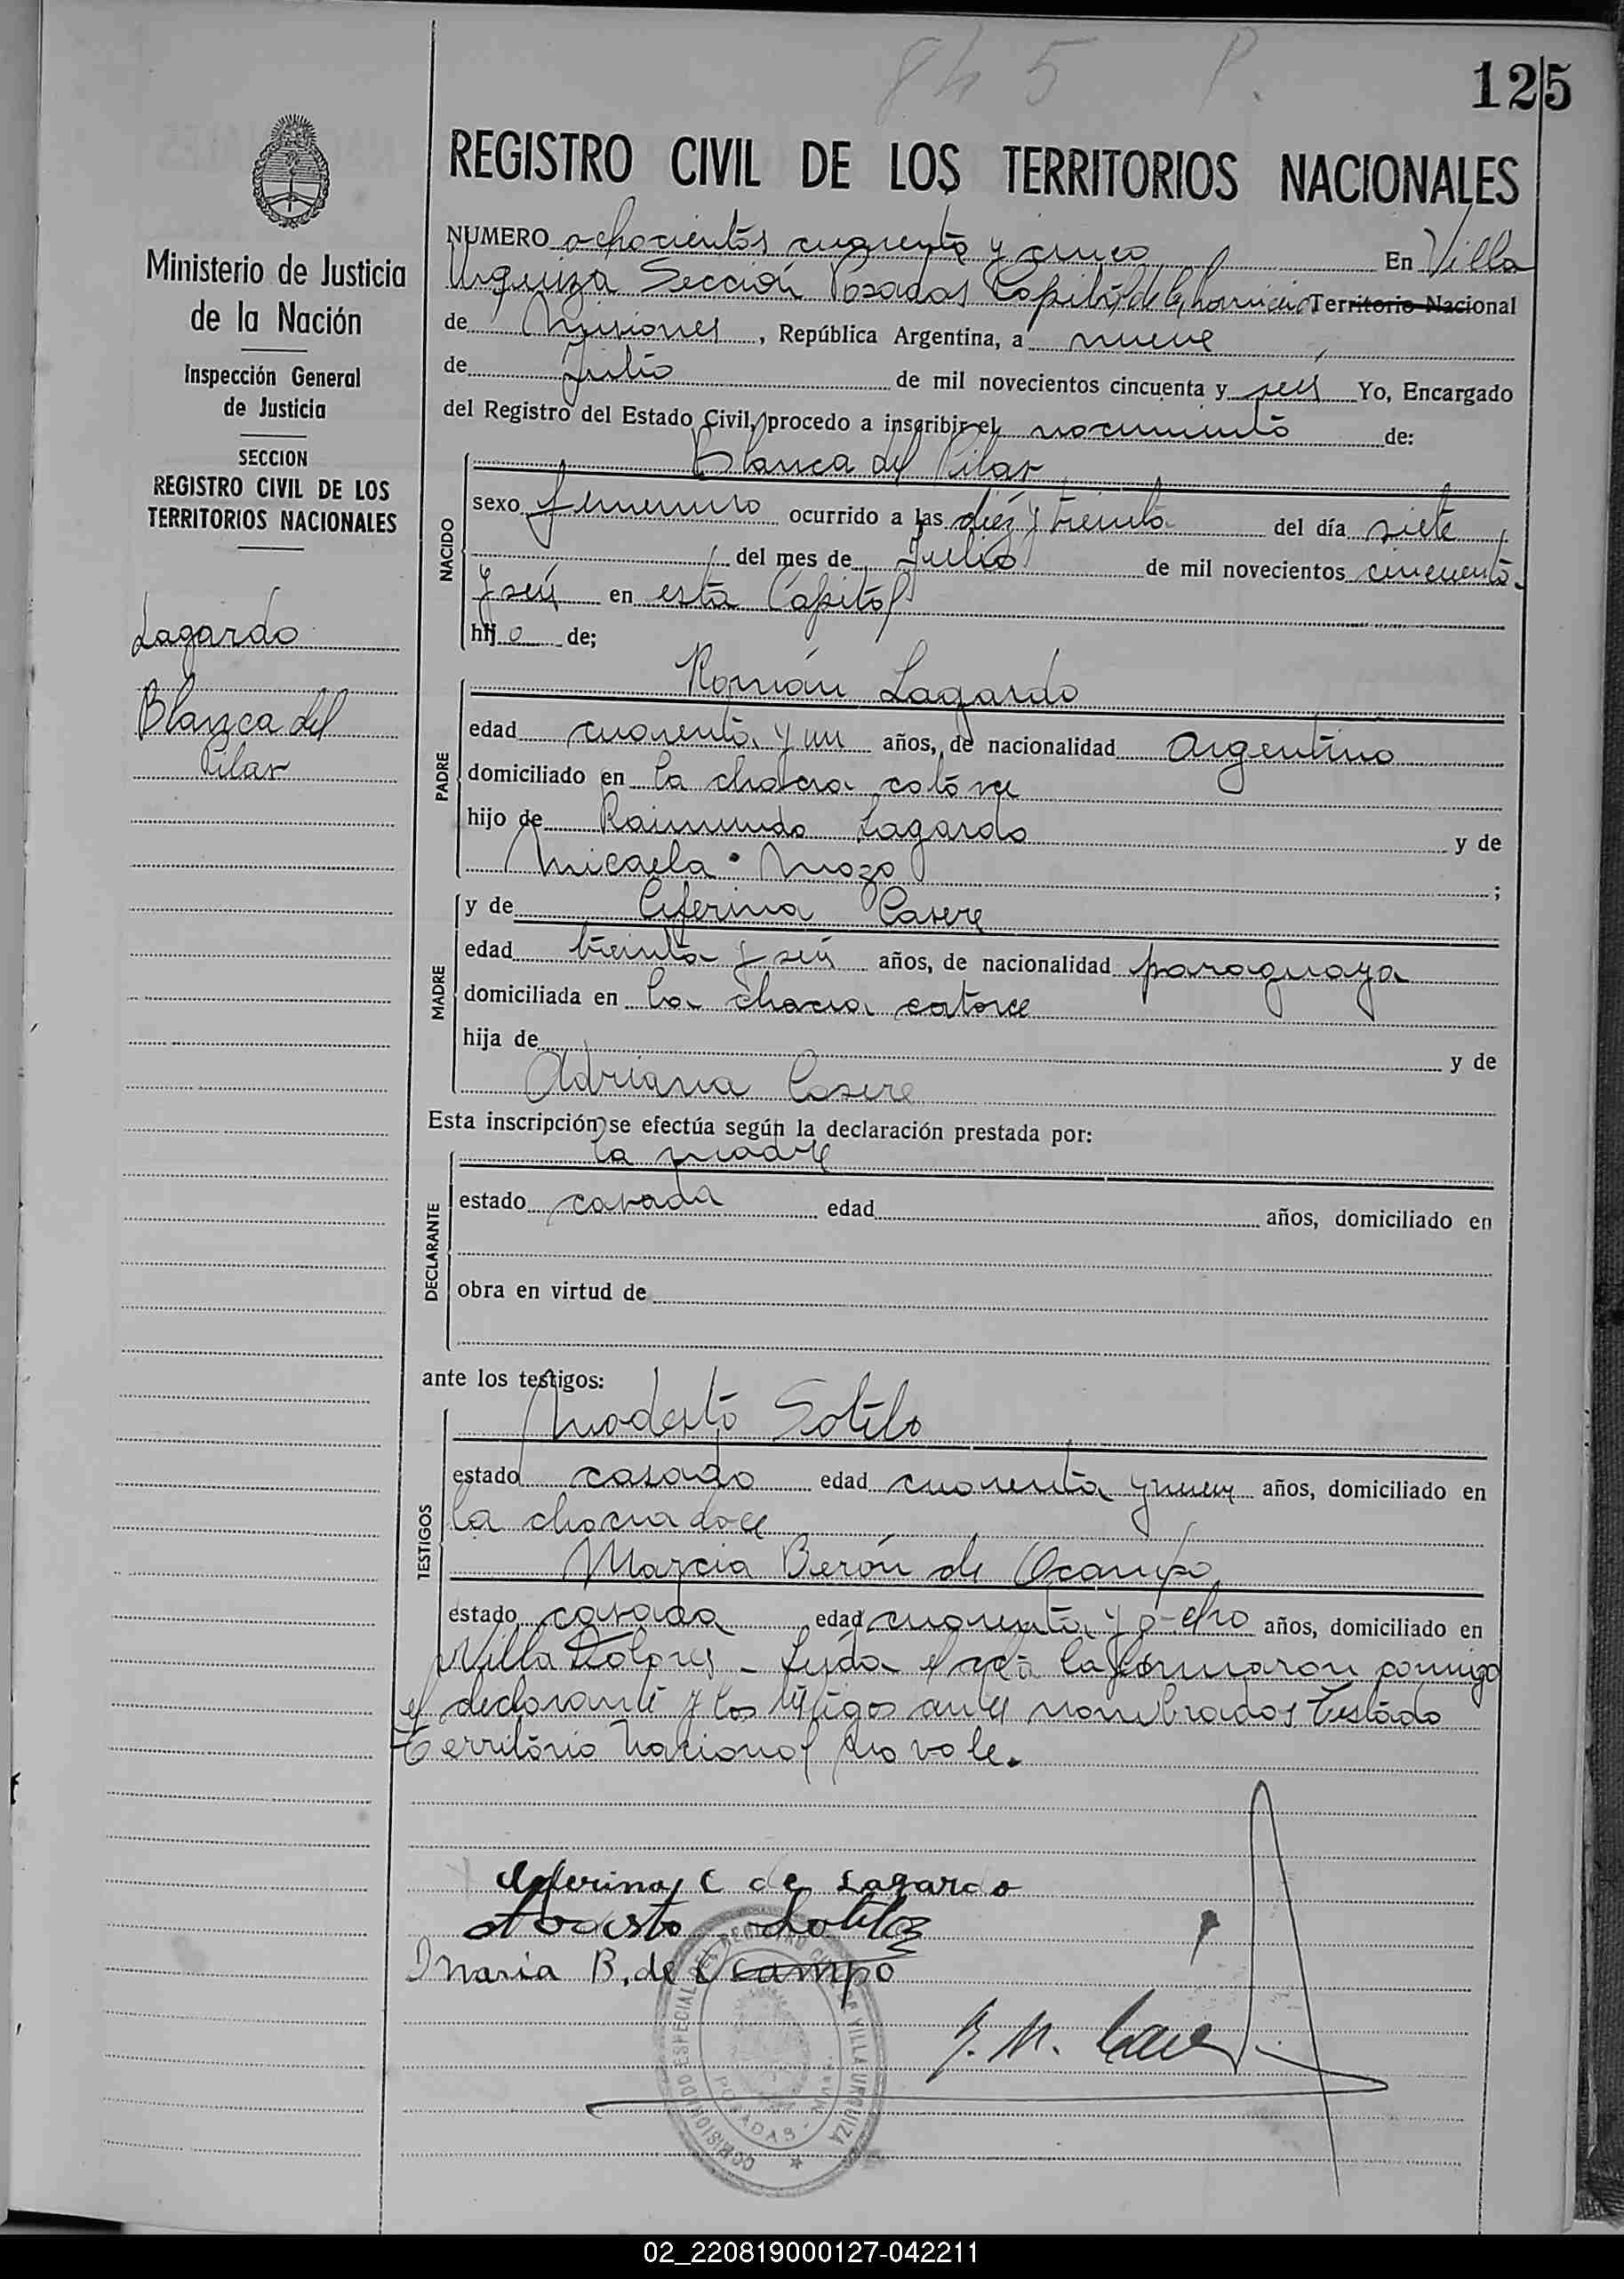 845 P.
125
REGISTRO CIVIL DE LOS TERRITORIOS NACIONALES
Ministerio de Justicia
de la Nación
Inspección General
de Justicia
SECCION
REGISTRO CIVIL DE LOS
TERRITORIOS NACIONALES
Lagardo
Blanca del
Pilar
NUMERO ochocientos cuarenta y cinco En Villa
Urquiza Sección Posadas Capital de la Provincia Territorio Nacional
de Misiones, República Argentina, a nueve
de Julio de mil novecientos cincuenta y seis Yo, Encargado
del Registro del Estado Civil, procedo a inscribir el nacimiento de:
Blanca del Pilar
NACIDO
sexo femenino ocurrido a las diez y treinta del día siete
del mes de Julio de mil novecientos cincuenta
y seis en esta Capital
hij a de;
Román Lagardo
PADRE
edad cuarenta y un años, de nacionalidad Argentino
domiciliado en la chacra catorce
hijo de Raimundo Lagardo y de
Micaela Mozo ;
y de Ceferina Casere
MADRE
edad treinta y seis años, de nacionalidad paraguaya
domiciliada en la chacra catorce
hija de y de
Adriana Casere
Esta inscripción se efectúa según la declaración prestada por:
la madre
DECLARANTE
estado casada edad años, domiciliado en
obra en virtud de
ante los testigos:
Modesto Sotelo
TESTIGOS
estado casado edad cuarenta y nueve años, domiciliado en
la chacra doce
Marcia Verón de Ocampo
estado casada edad cuarenta y ocho años, domiciliado en
Villa Dolores - Leída el acta la firmaron conmigo
el declarante y los testigos antes nombrados Testado
Territorio Nacional No vale.
Ceferina C de Lagardo
Modesto Sotelo
Maria B. de Ocampo
COMISIONADO ESPECIAL DEL REGISTRO CIVIL DE VILLA URQUIZA
POSADAS - MNES.
02_220819000127-042211